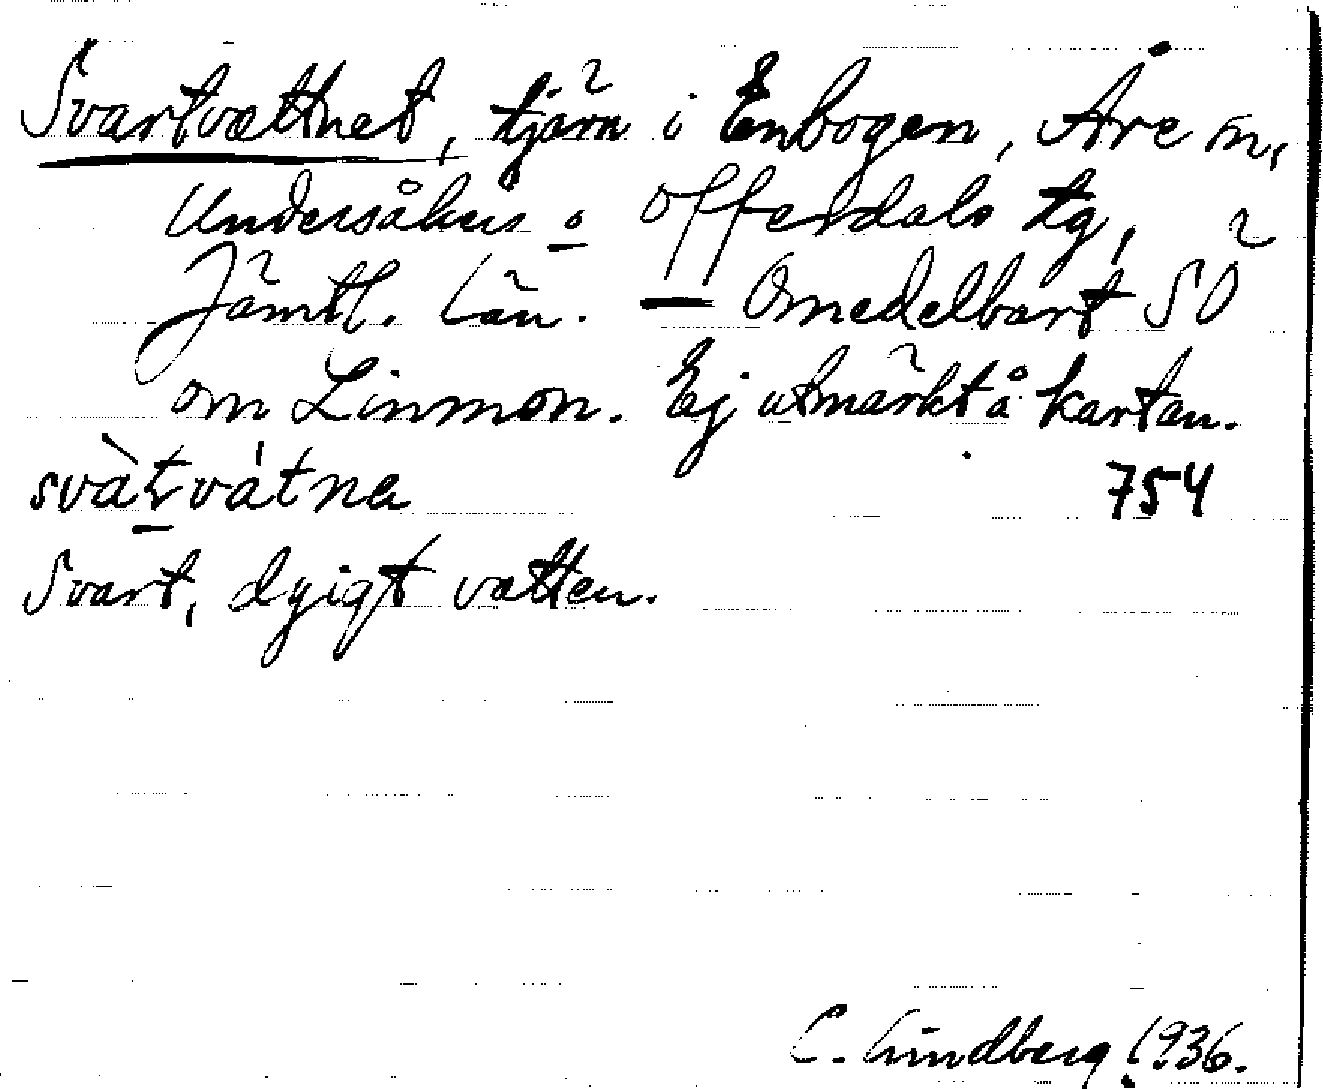 Svartvattnet, tjärn i Enbogen, Åre sn,
Undersåkers o Offerdals tg,
Jämtl. län. — Omedelbart SÖ
om Linmon. Ej utmärkt å kartan.
svàtvátna 754
Svart, dyigt vatten.
C. Lindberg 1936.